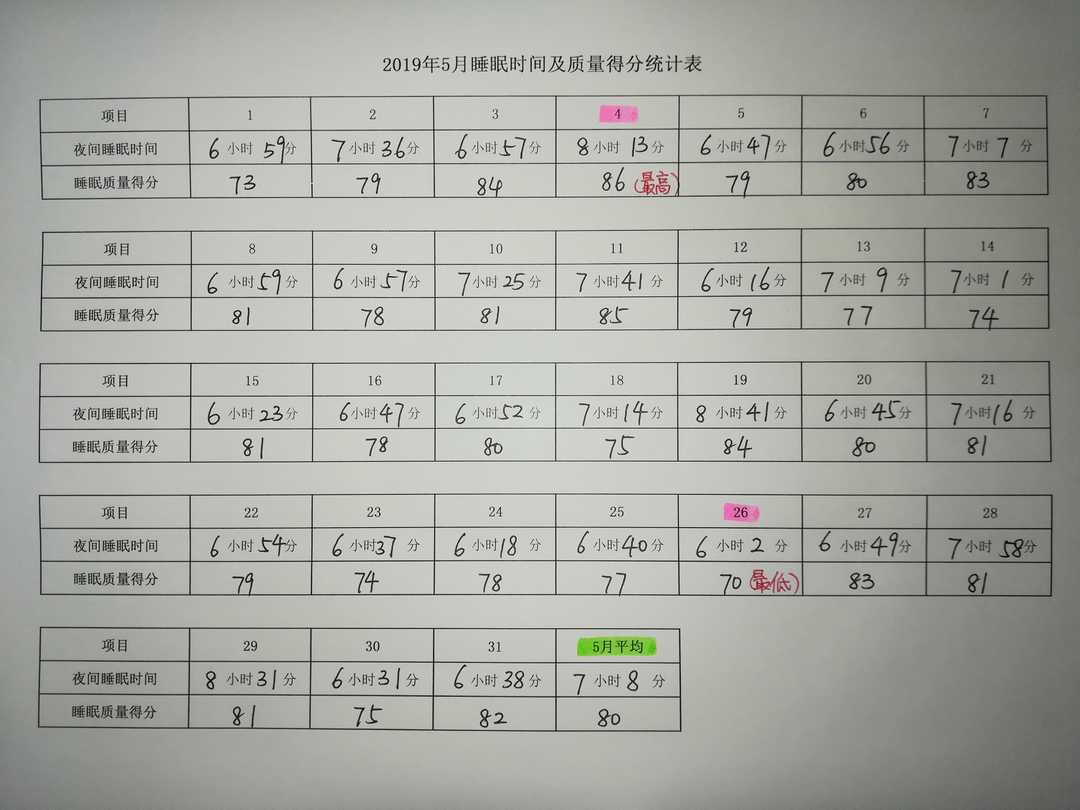 2019年5月睡眠时间及质量得分统计表
项目 1 2 3 4 5 6 7
夜间睡眠时间 6小时59分 7小时36分 6小时57分 8小时13分 6小时47分 6小时56分 7小时7分
睡眠质量得分 73 79 84 86(最高) 79 80 83
项目 8 9 10 11 12 13 14
夜间睡眠时间 6小时59分 6小时57分 7小时25分 7小时41分 6小时16分 7小时9分 7小时1分
睡眠质量得分 81 78 81 85 79 77 74
项目 15 16 17 18 19 20 21
夜间睡眠时间 6小时23分 6小时47分 6小时52分 7小时14分 8小时41分 6小时45分 7小时16分
睡眠质量得分 81 78 80 75 84 80 81
项目 22 23 24 25 26 27 28
夜间睡眠时间 6小时54分 6小时37分 6小时18分 6小时40分 6小时2分 6小时49分 7小时58分
睡眠质量得分 79 74 78 77 70(最低) 83 81
项目 29 30 31 5月平均
夜间睡眠时间 8小时31分 6小时31分 6小时38分 7小时8分
睡眠质量得分 81 75 82 80